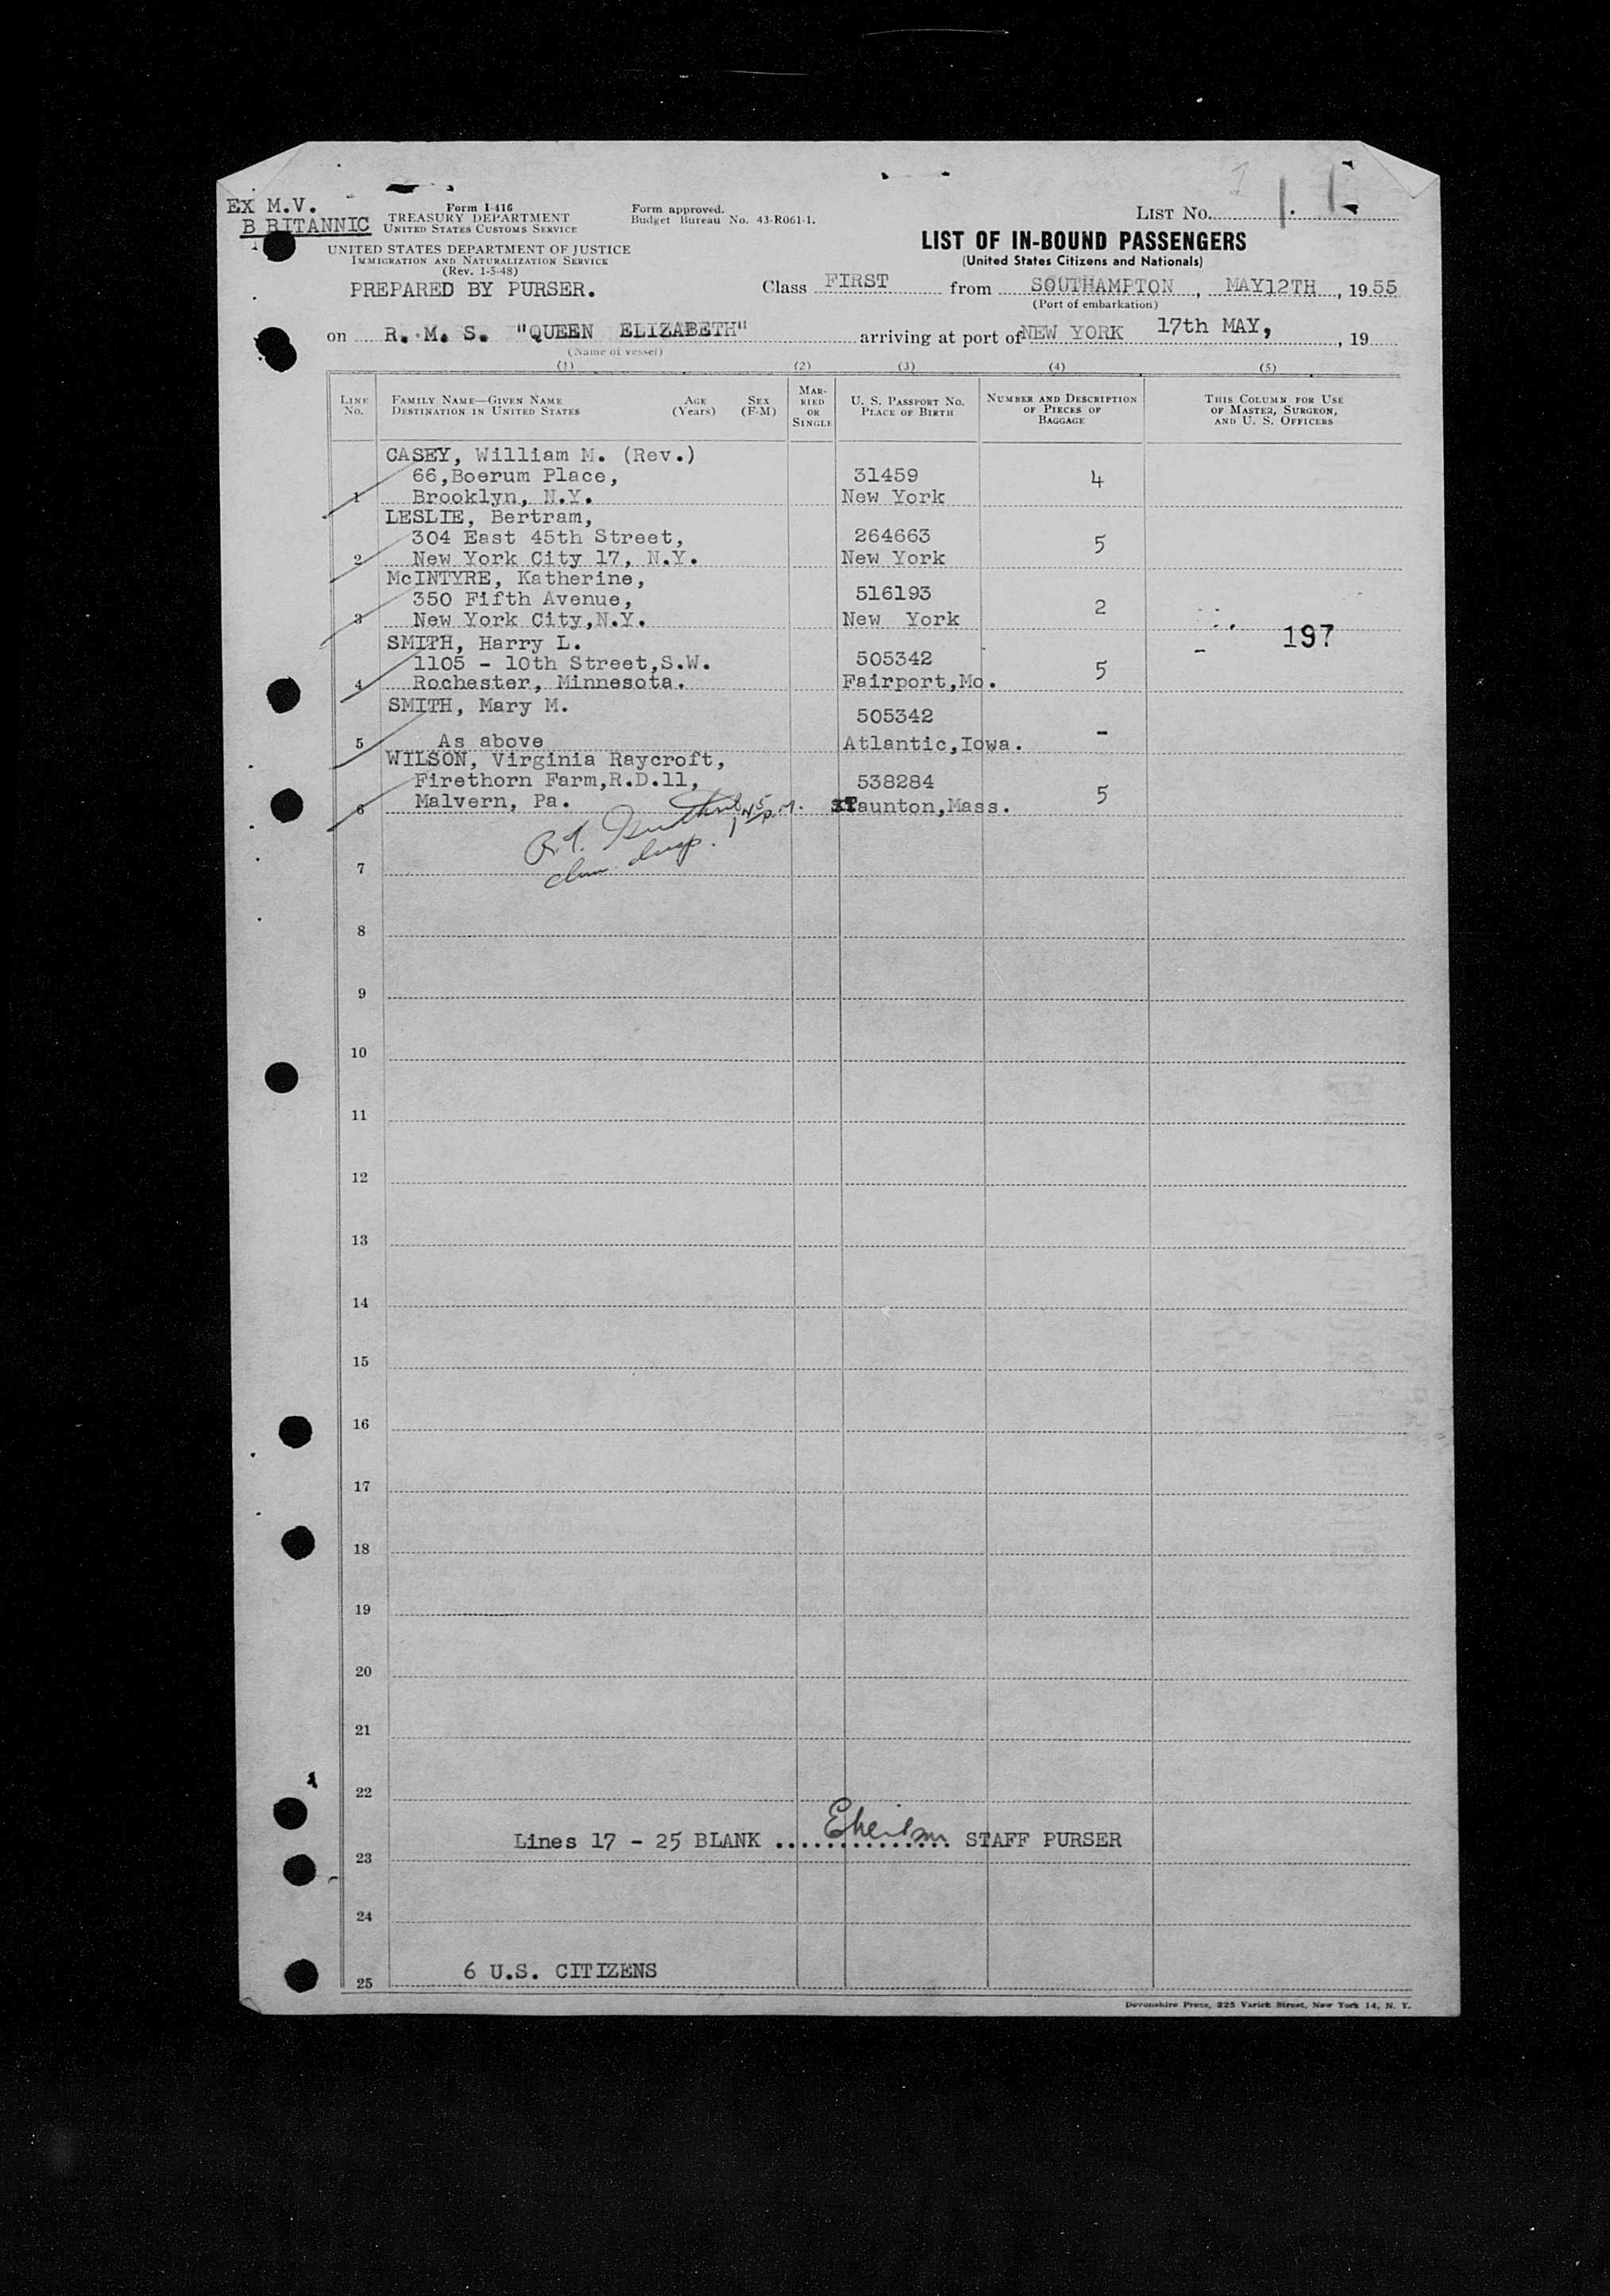 EX M.V.
BRITANNIC
Form I-416
TREASURY DEPARTMENT
UNITED STATES CUSTOMS SERVICE
UNITED STATES DEPARTMENT OF JUSTICE
IMMIGRATION AND NATURALIZATION SERVICE
(Rev. 1-5-48)
PREPARED BY PURSER.
Form approved.
Budget Bureau No. 43-R061-1.
LIST NO. 1.
LIST OF IN-BOUND PASSENGERS
(United States Citizens and Nationals)
Class FIRST from SOUTHAMPTON, MAY12TH, 1955
(Port of embarkation)
on R. M. S. "QUEEN ELIZABETH" arriving at port of NEW YORK 17th MAY, 19
(Name of vessel)
(1) (2) (3) (4) (5)
LINE No. FAMILY NAME—GIVEN NAME DESTINATION IN UNITED STATES AGE (Years) SEX (F-M) MARRIED OR SINGLE U. S. PASSPORT NO. PLACE OF BIRTH NUMBER AND DESCRIPTION OF PIECES OF BAGGAGE THIS COLUMN FOR USE OF MASTER, SURGEON, AND U. S. OFFICERS
CASEY, William M. (Rev.)
66,Boerum Place, 31459 4
1 Brooklyn, N.Y. New York
LESLIE, Bertram,
304 East 45th Street, 264663 5
2 New York City 17, N.Y. New York
McINTYRE, Katherine,
350 Fifth Avenue, 516193 2
3 New York City,N.Y. New York
197
SMITH, Harry L.
1105 - 10th Street,S.W. 505342 5
4 Rochester, Minnesota. Fairport,Mo.
SMITH, Mary M.
505342 -
5 As above Atlantic,Iowa.
WILSON, Virginia Raycroft,
Firethorn Farm,R.D.11, 538284 5
6 Malvern, Pa. Taunton,Mass.
7
8
9
10
11
12
13
14
15
16
17
18
19
20
21
22
Lines 17 - 25 BLANK .............. STAFF PURSER
23
24
6 U.S. CITIZENS
25
Devonshire Press, 225 Varick Street, New York 14, N. Y.